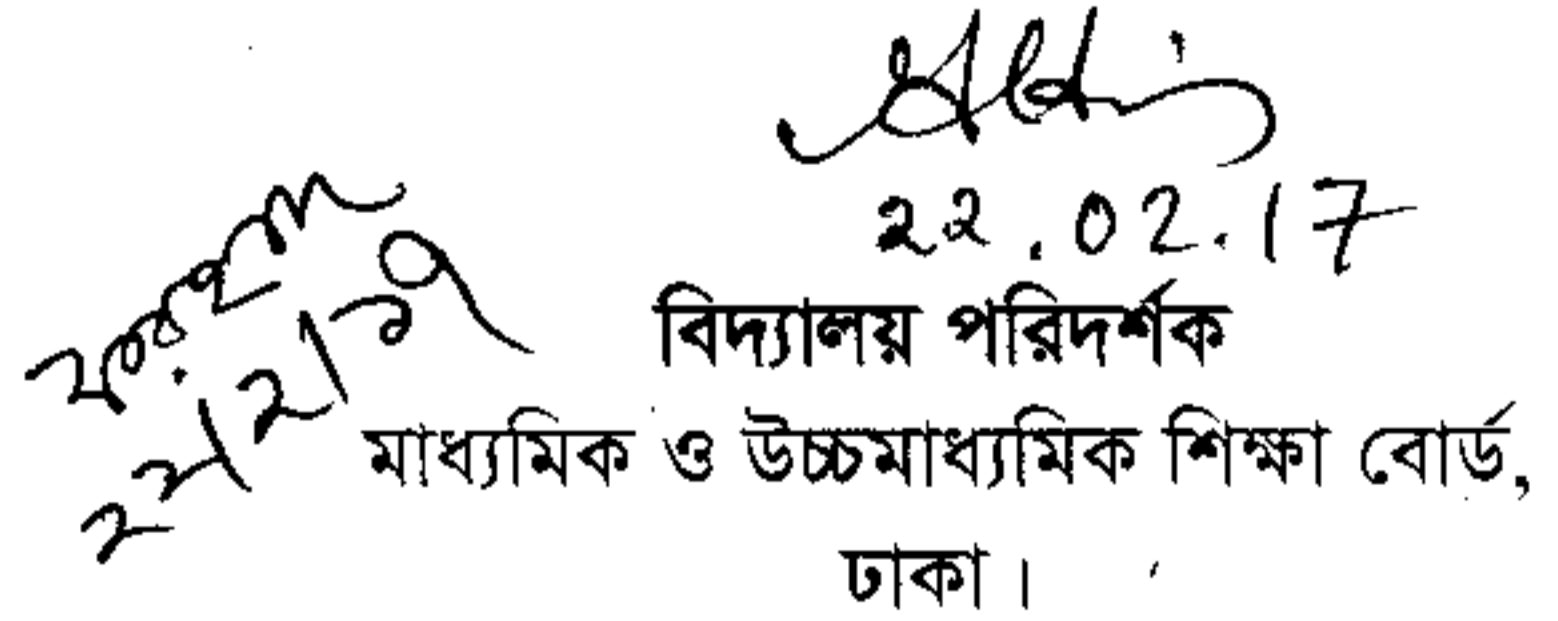 22.02.17
২২/২/১৭
বিদ্যালয় পরিদর্শক
মাধ্যমিক ও উচ্চমাধ্যমিক শিক্ষা বোর্ড,
ঢাকা।